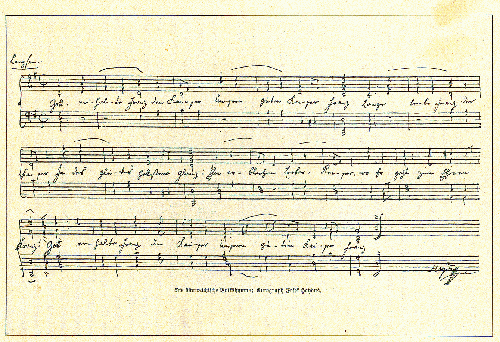 Langsam.
Gott er-hal-te Franz den Kaiser unsern guten Kaiser Franz Lange lebe Franz der
Kaiser in des Glü-ckes Glanz. Ihm er-blühen wo er geht zum Ehren
kranz! Gott erhalte Franz den Kaiser unsern gu-ten Kai-ser Franz
Die österreichische Volkshymne; Autograph Josef Haydns.